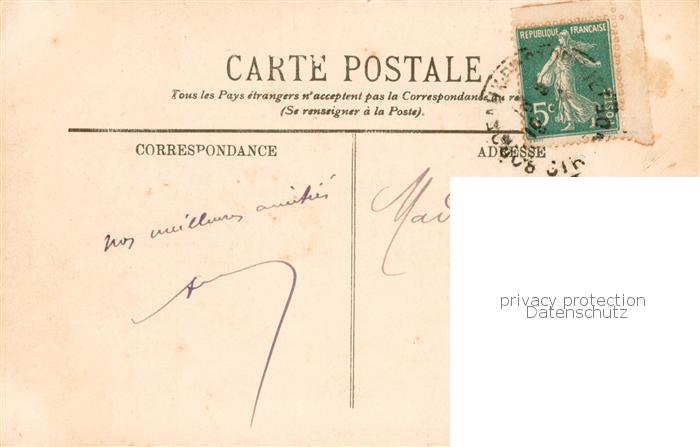 RÉPUBLIQUE FRANÇAISE
5c
POSTES
CARTE POSTALE
Tous les Pays étrangers n'acceptent pas la Correspondance au
(Se renseigner à la Poste).
CORRESPONDANCE
ADRESSE
Nos meilleures amitiés
Mad
privacy protection
Datenschutz